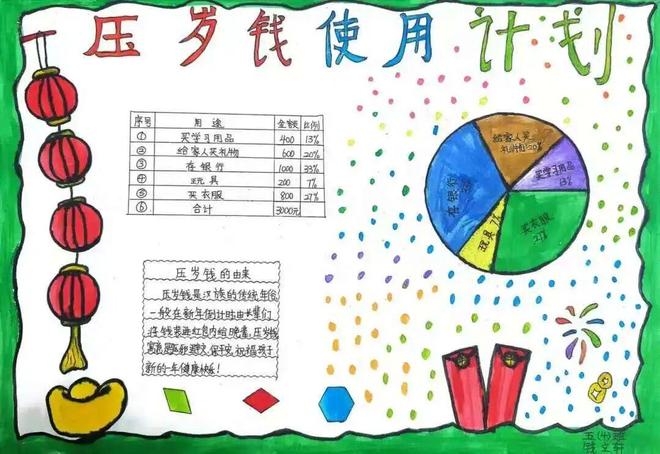 压岁钱使用计划
序号 用途 金额 比例
① 买学习用品 400 13%
② 给家人买礼物 600 20%
③ 存银行 1000 33%
④ 玩具 200 7%
⑤ 买衣服 800 27%
⑥ 合计 3000元
给家人买
礼物20%
买学习用品
13%
存银行
玩具 7%
买衣服
27%
压岁钱的由来
压岁钱是汉族的传统年俗
一般在新年倒计时由长辈们
将钱装进红包内给晚辈,压岁钱
保平安,祝福孩子
新的一年健康快乐!
五(4)班
钱文轩